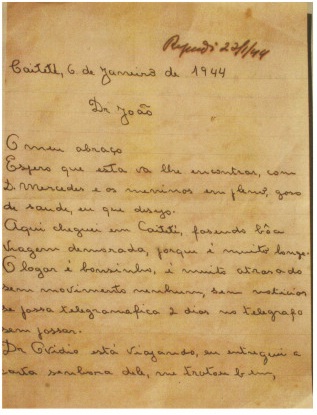 Respondi 23/1/44
Caiteté, 6 de Janeiro de 1944
Dr João
O meu abraço
Espero que esta va lhe encontrar, com
D. Mercedes e os meninos em pleno, goso
de saude, eu que desejo.
Aqui cheguei em Caiteté, fasendo bôa
viagem demorada, porque é muito longe.
O logar é bonsinho, é muito atrasado
sem movimento nenhum, sem noticias
se passa telegrama fica 2 dias no telegrafo
sem passar.
Dr Ovidio está viajando, eu entreguei a
carta senhora dele, me tratou bem,